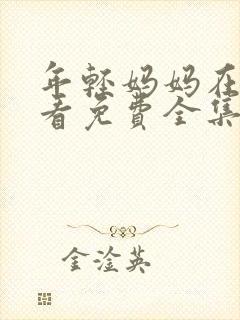 年轻妈妈在
看免费全集
金淦英